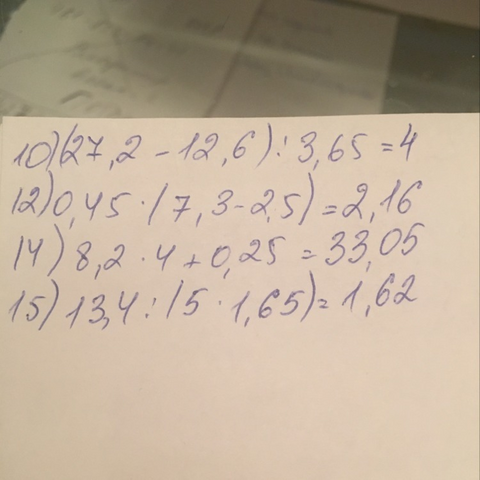 10)(27,2 - 12,6) : 3,65 = 4
12) 0,45 · (7,3 - 2,5) = 2,16
14) 8,2 · 4 + 0,25 = 33,05
15) 13,4 : (5 · 1,65) = 1,62